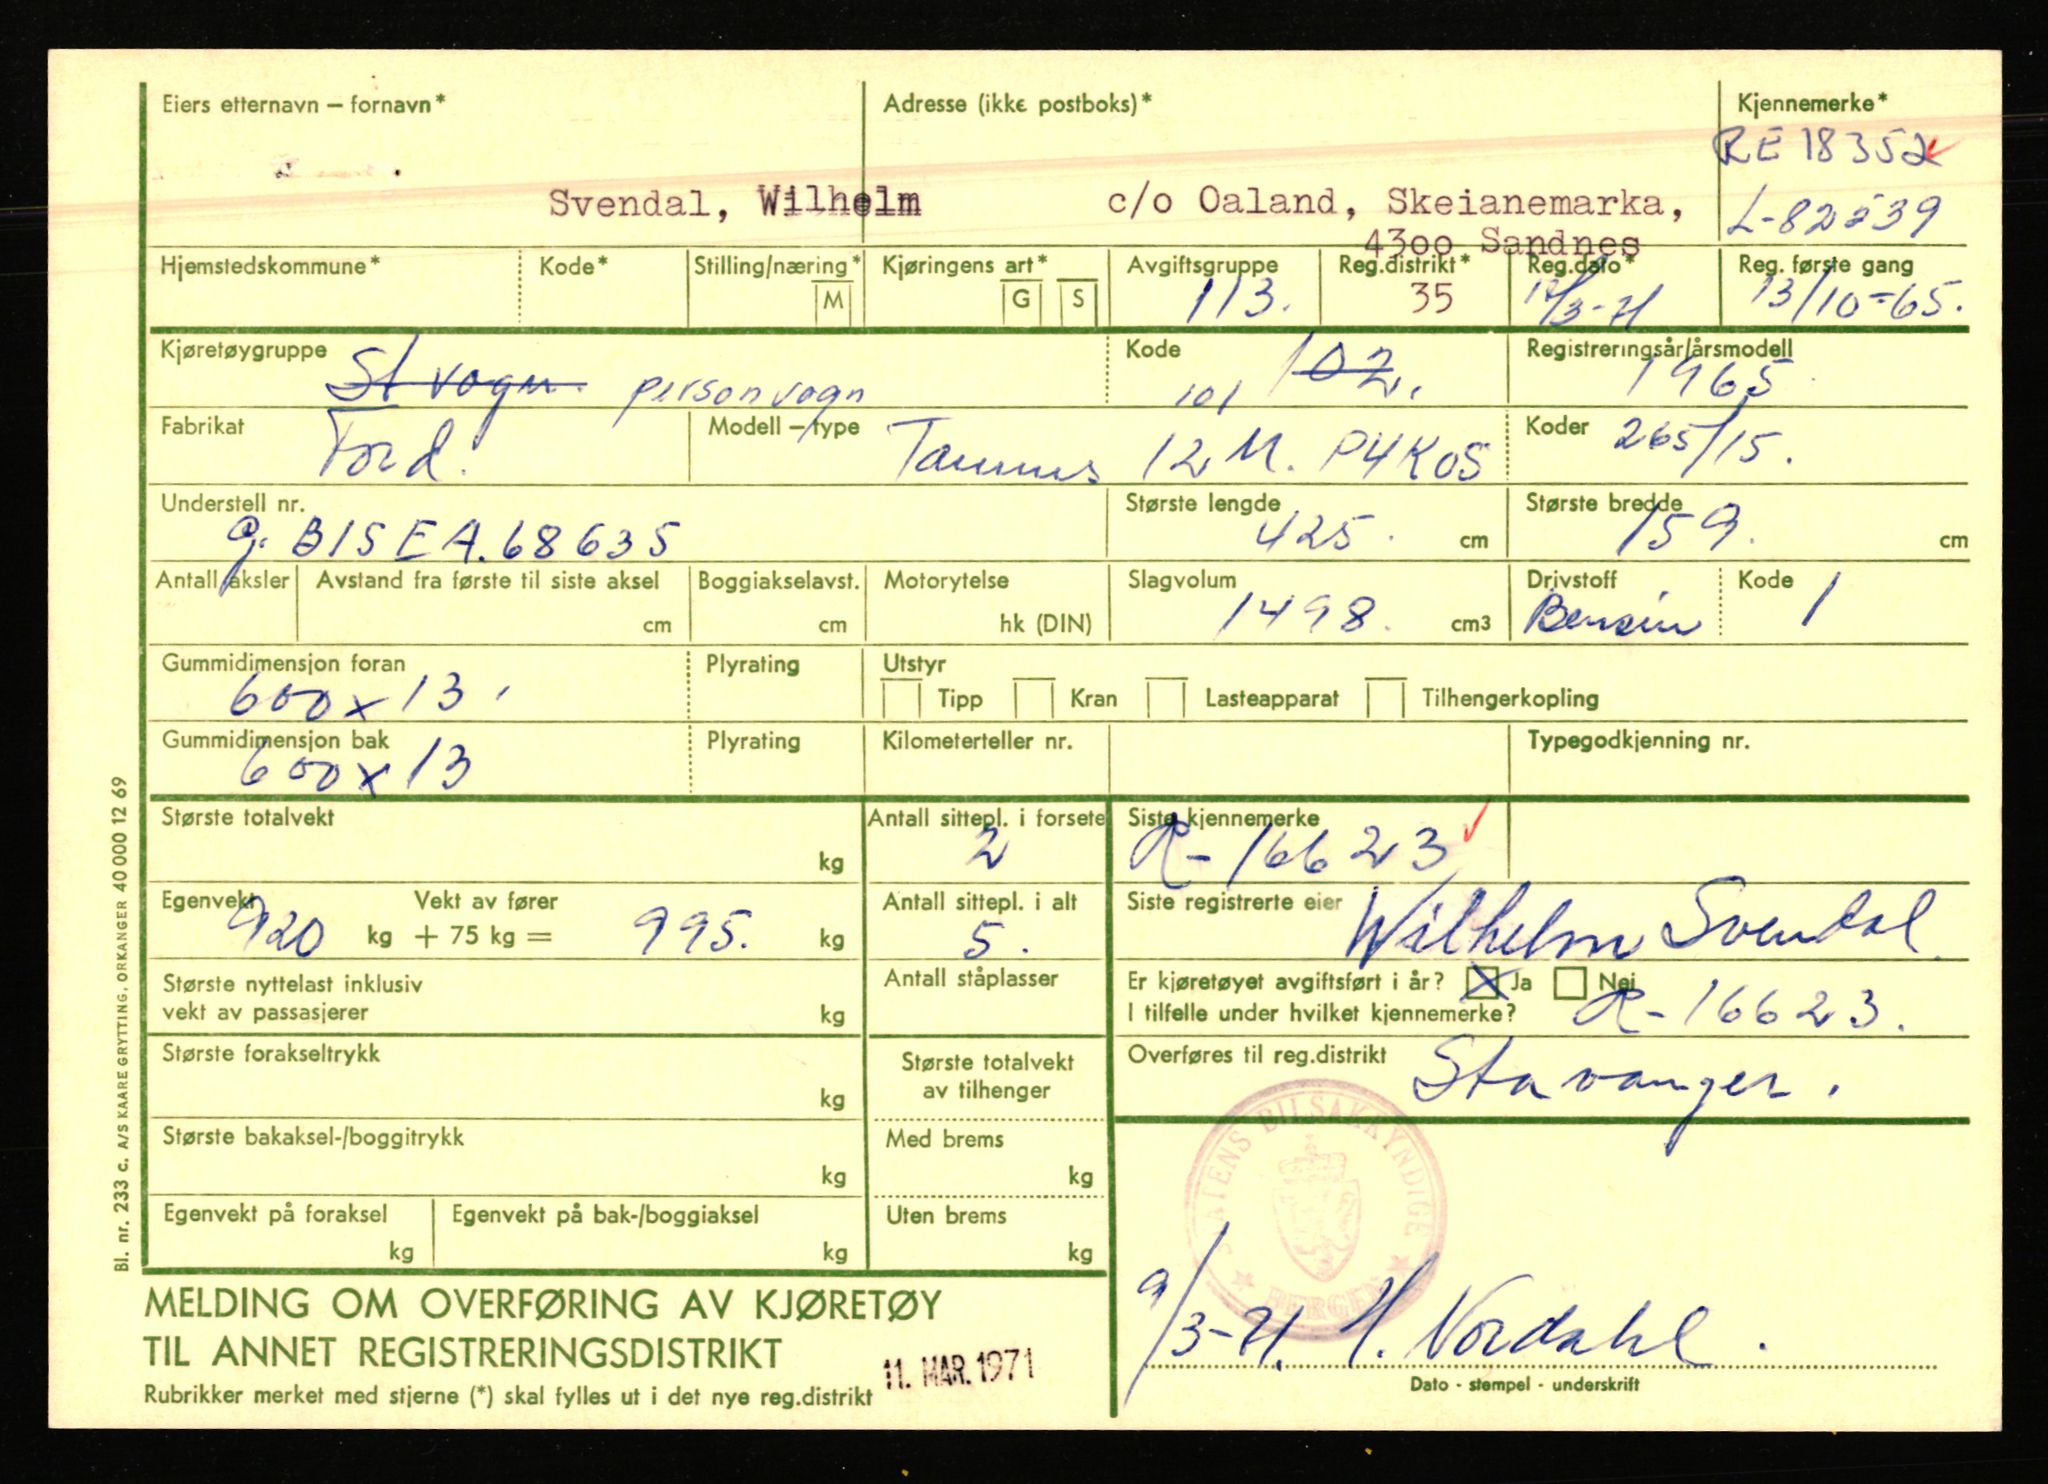 Eiers etternavn – fornavn* Adresse (ikke postboks)* Kjennemerke*
RE 18352
Svendal, Wilhelm c/o Oaland, Skeianemarka, L-82539
4300 Sandnes
Hjemstedskommune* Kode* Stilling/næring* Kjøringens art* Avgiftsgruppe Reg.distrikt* Reg.dato* Reg. første gang
M G S 113. 35 12/3-71 13/10-65.
Kjøretøygruppe Kode Registreringsår/årsmodell
St vogn. personvogn 101 102. 1965
Fabrikat Modell – type Koder
Ford. Taunus 12 M. P4K05 265/15.
Understell nr. Største lengde Største bredde
g. BISEA.68635 425. cm 159. cm
Antall aksler Avstand fra første til siste aksel Boggiakselavst. Motorytelse Slagvolum Drivstoff Kode
cm cm hk (DIN) 1498. cm3 Bensin 1
Gummidimensjon foran Plyrating Utstyr
600x13. Tipp Kran Lasteapparat Tilhengerkopling
Gummidimensjon bak Plyrating Kilometerteller nr. Typegodkjenning nr.
600x13
Største totalvekt Antall sittepl. i forsete Siste kjennemerke
kg 2 R-16623
Egenvekt Vekt av fører Antall sittepl. i alt Siste registrerte eier
920 kg + 75 kg = 995. kg 5. Wilhelm Svendal
Største nyttelast inklusiv Antall ståplasser Er kjøretøyet avgiftsført i år? Ja Nei
vekt av passasjerer kg I tilfelle under hvilket kjennemerke? R-16623.
Største forakseltrykk Største totalvekt Overføres til reg.distrikt Stavanger.
kg av tilhenger
Største bakaksel-/boggitrykk Med brems
kg kg
Egenvekt på foraksel Egenvekt på bak-/boggiaksel Uten brems
kg kg kg
STATENS BILSAKKYNDIGE
BERGEN
MELDING OM OVERFØRING AV KJØRETØY
TIL ANNET REGISTRERINGSDISTRIKT 9/3-71. H. Nordahl.
11. MAR. 1971
Rubrikker merket med stjerne (*) skal fylles ut i det nye reg.distrikt Dato - stempel - underskrift
Bl. nr. 233 c. A/S KAARE GRYTTING, ORKANGER 40 000 12 69